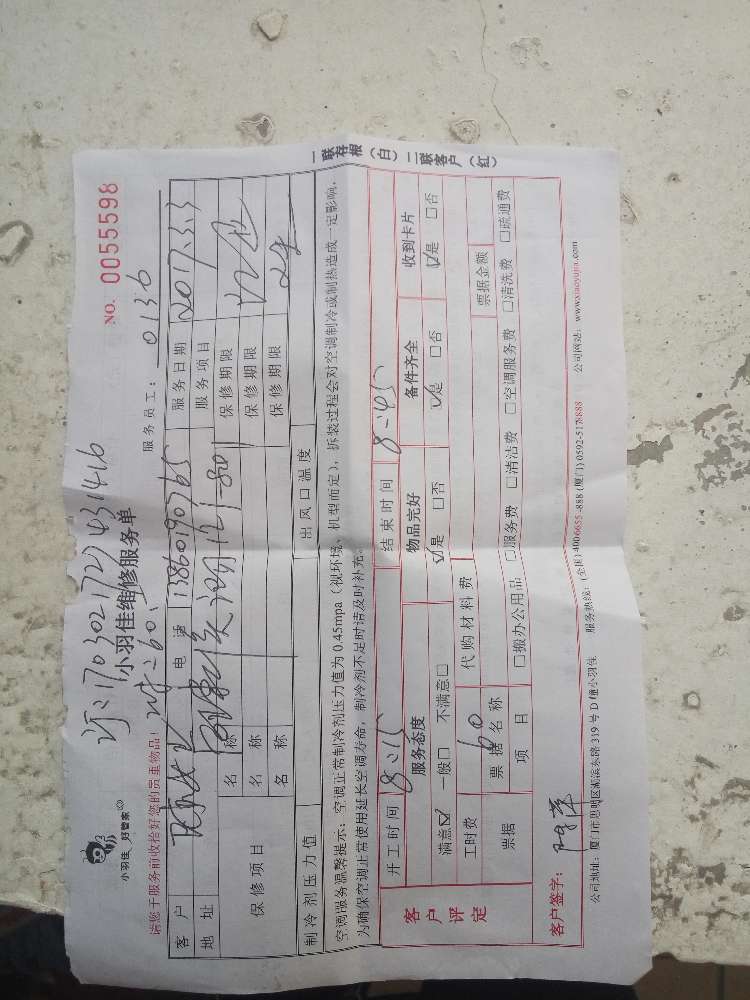 170302172431416
NO. 0055598
小羽佳 好管家
小羽佳维修服务单
服务员工: 0136
请您于服务前收拾好您的贵重物品!
客户 电话 13860190765 服务日期 2017.3.3
地址 服务项目
保修项目 名称 保修期限
名称 保修期限
名称 保修期限
制冷剂压力值 出风口温度
空调服务温馨提示:空调正常制冷剂压力值为 0.45mpa(视环境、机型而定),拆装过程会对空调制冷或制热造成一定影响,
为确保空调正常使用延长空调寿命,制冷剂不足时请及时补充。
一联存根(白)二联客户(红)
客户评定 开工时间 8:15 结束时间 8:45
服务态度 物品完好 备件齐全 收到卡片
满意☑ 一般□ 不满意□ ☑是 □否 ☑是 □否 ☑是 □否
工时费 60 代购材料费
票据 票据名称 票据金额
项目 □搬办公用品 □服务费 □清洁费 □空调服务费 □清洗费 □疏通费
客户签字:
公司地址:厦门市思明区湖滨东路 319 号 D 幢小羽佳 服务热线:(全国) 4006655-888 (厦门) 0592-5178888 公司网站:www.xiaoyujia.com